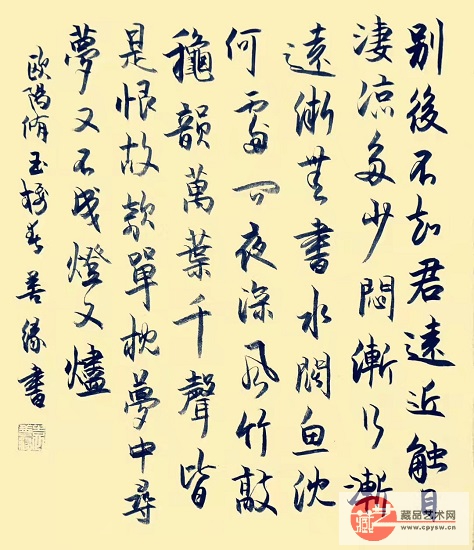 别後不知君遠近触目
淒涼多少悶漸行漸
遠漸無書水闊魚沈
何處問夜深風竹敲
龝韻萬葉千聲皆
是恨故欹單枕夢中尋
夢又不成燈又燼
欧陽脩玉樓春 善緣書
藏
藏品艺术网
www.cpysw.cn